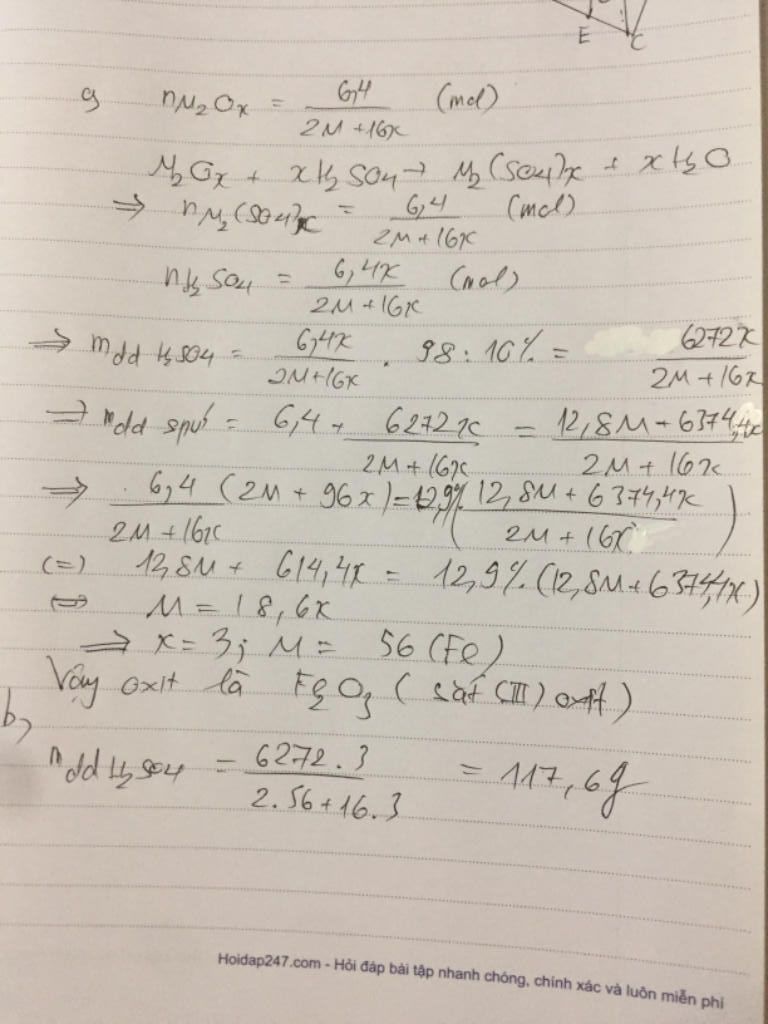 E C
a) nM₂Oₓ = 6,4 / (2M+16x) (mol)
M₂Oₓ + xH₂SO₄ → M₂(SO₄)ₓ + xH₂O
=> nM₂(SO₄)ₓ = 6,4 / (2M+16x) (mol)
nH₂SO₄ = 6,4x / (2M+16x) (mol)
=> mdd H₂SO₄ = 6,4x / (2M+16x) . 98 : 10% = 6272x / (2M+16x)
=> mdd spứ = 6,4 + 6272x / (2M+16x) = (12,8M + 6374,4x) / (2M+16x)
=> 6,4 / (2M+16x) (2M + 96x) = 12,9% ( (12,8M + 6374,4x) / (2M+16x) )
(=) 12,8M + 614,4x = 12,9% (12,8M + 6374,4x)
<=> M = 18,6x
=> x = 3; M = 56 (Fe)
Vậy oxit là Fe₂O₃ (sắt (III) oxit)
b)
mdd H₂SO₄ = 6272.3 / (2.56+16.3) = 117,6g
Hoidap247.com - Hỏi đáp bài tập nhanh chóng, chính xác và luôn miễn phí